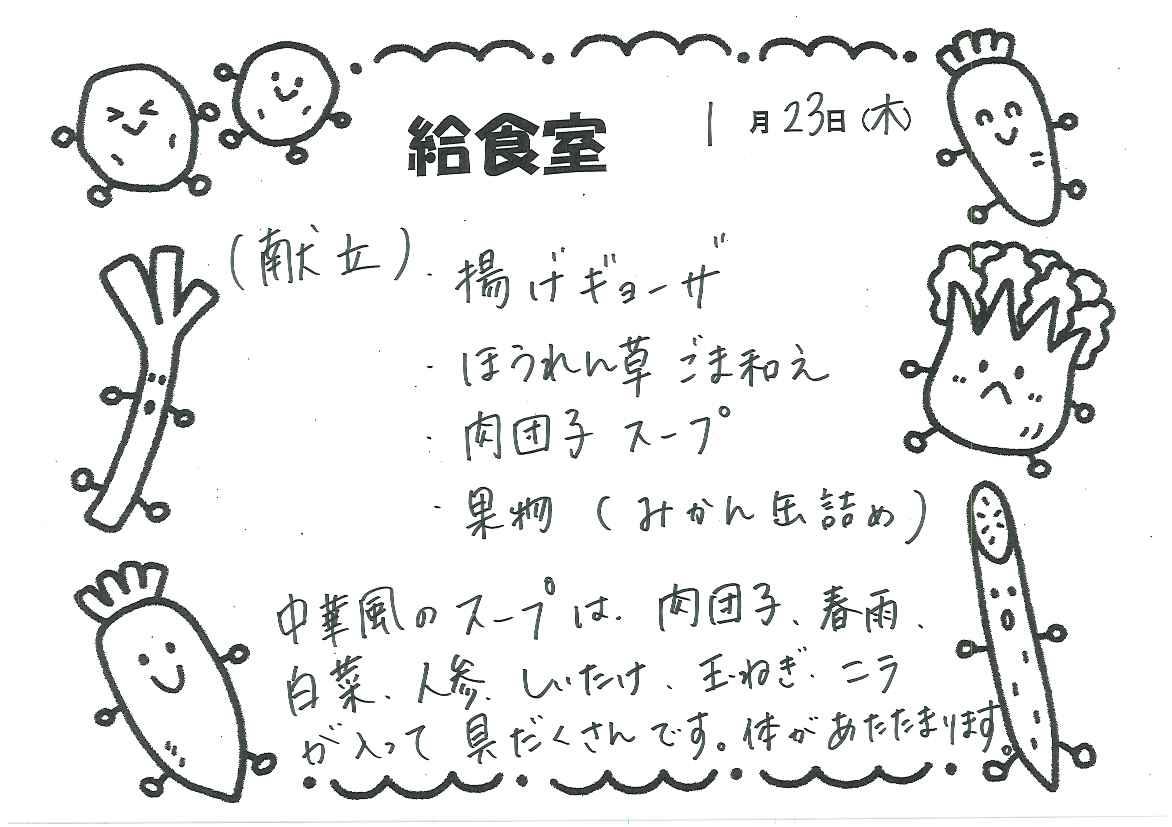 給食室
1月23日(木)
(献立)・揚げギョーザ
・ほうれん草ごま和え
・肉団子スープ
・果物(みかん缶詰め)
中華風のスープは、肉団子、春雨、
白菜、人参、しいたけ、玉ねぎ、ニラ
が入って具だくさんです。体があたたまります。